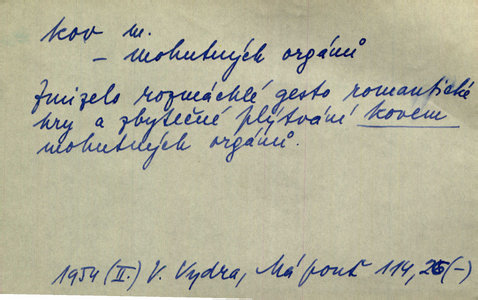 kov m.
– mohutných orgánů
Zmizelo rozmáchlé gesto romantické
hry a zbytečné plýtvání kovem
mohutných orgánů.
1954 (II.) V. Vydra, Má pouť 114, 26 (–)